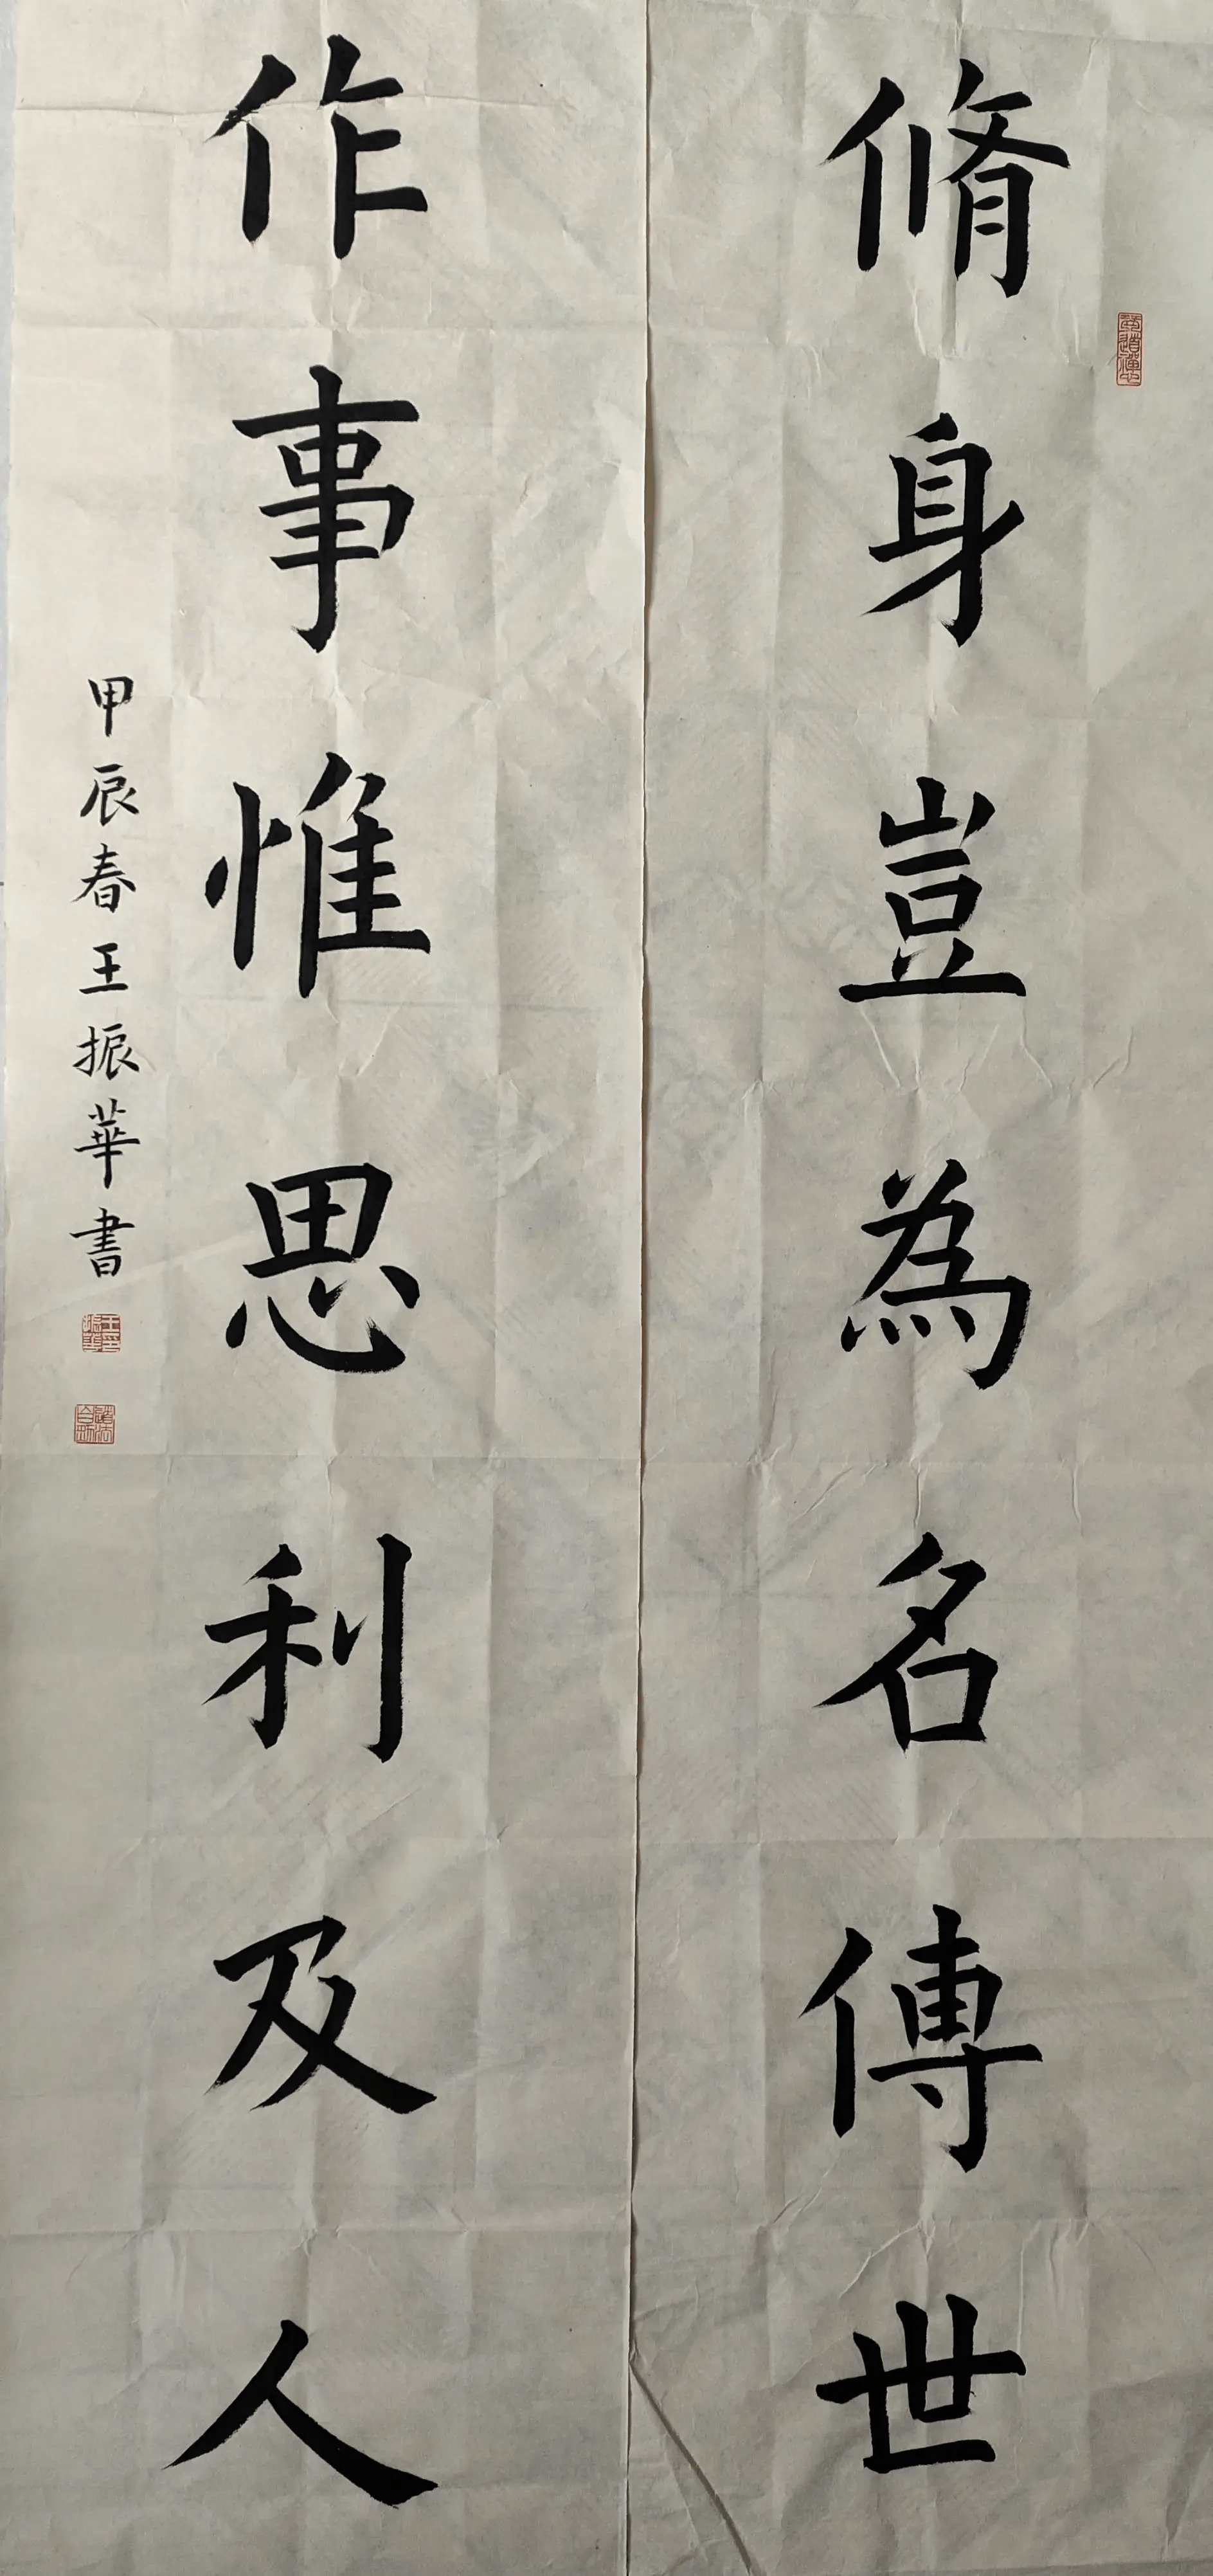 脩身豈為名傳世
作事惟思利及人
甲辰春王振華書